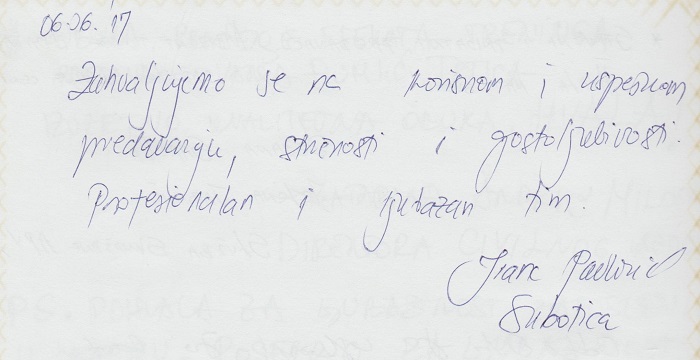 06.06.'17
Zahvaljujemo se na korisnom i uspešnom
predavanju, stručnosti i gostoljubivosti.
Profesionalan i ljubazan tim.
Subotica